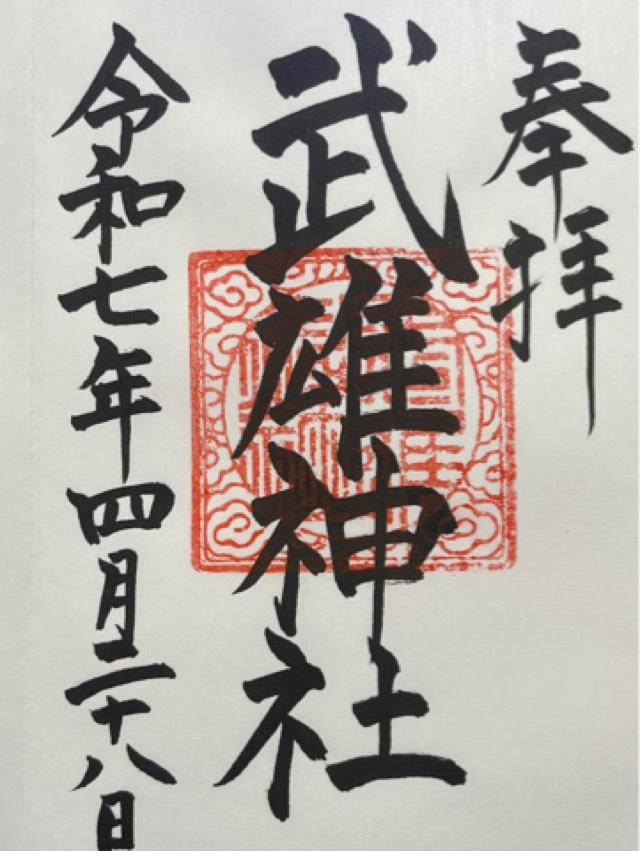 奉拝
武雄神社
令和七年四月二十八日